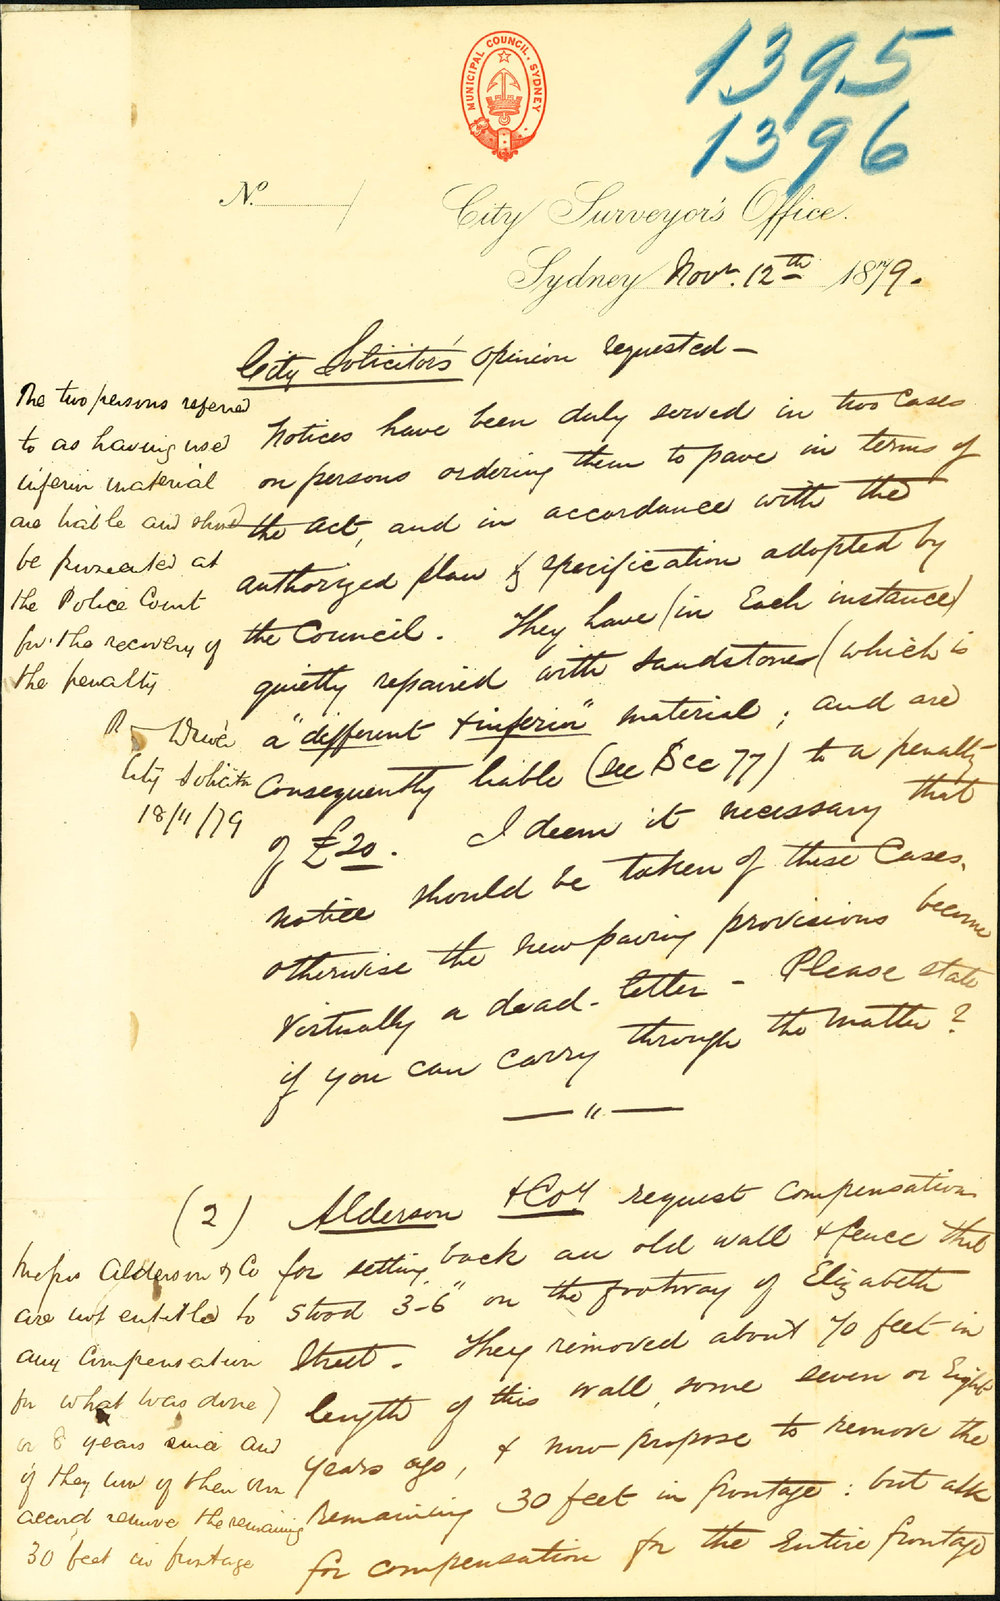 MUNICIPAL COUNCIL. SYDNEY
1395
1396
No.
City Surveyor's Office.
Sydney Novr. 12th 1879.
City Solicitor's opinion requested —
Notices have been duly served in two Cases
on persons ordering them to pave in terms of
the Act, and in accordance with the
authorized plan & specification adopted by
the Council. They have (in Each instance)
quietly repaired with sandstone (which is
a "different & inferior" material; and are
Consequently liable (see Sec 77) to a penalty
of £20. I deem it necessary that
notice should be taken of these Cases,
otherwise the new paving provisions become
virtually a dead-letter — Please state
if you can carry through the matter?
— " —
The two persons referred
to as having used
inferior material
are liable and should
be prosecuted at
the Police Court
for the recovery of
the penalty
R Driver
City Solicitor
18/11/79
(2) Alderson & Coy request Compensation
for setting back an old wall & fence that
stood 3-6" on the footway of Elizabeth
Street. They removed about 70 feet in
length of this wall, some seven or Eight
years ago, & now propose to remove the
remaining 30 feet in frontage: but ask
for compensation for the Entire frontage
Messrs Alderson & Co
are not entitled to
any Compensation
for what was done 7
or 8 years since and
if they now of their own
accord remove the remaining
30 feet in frontage